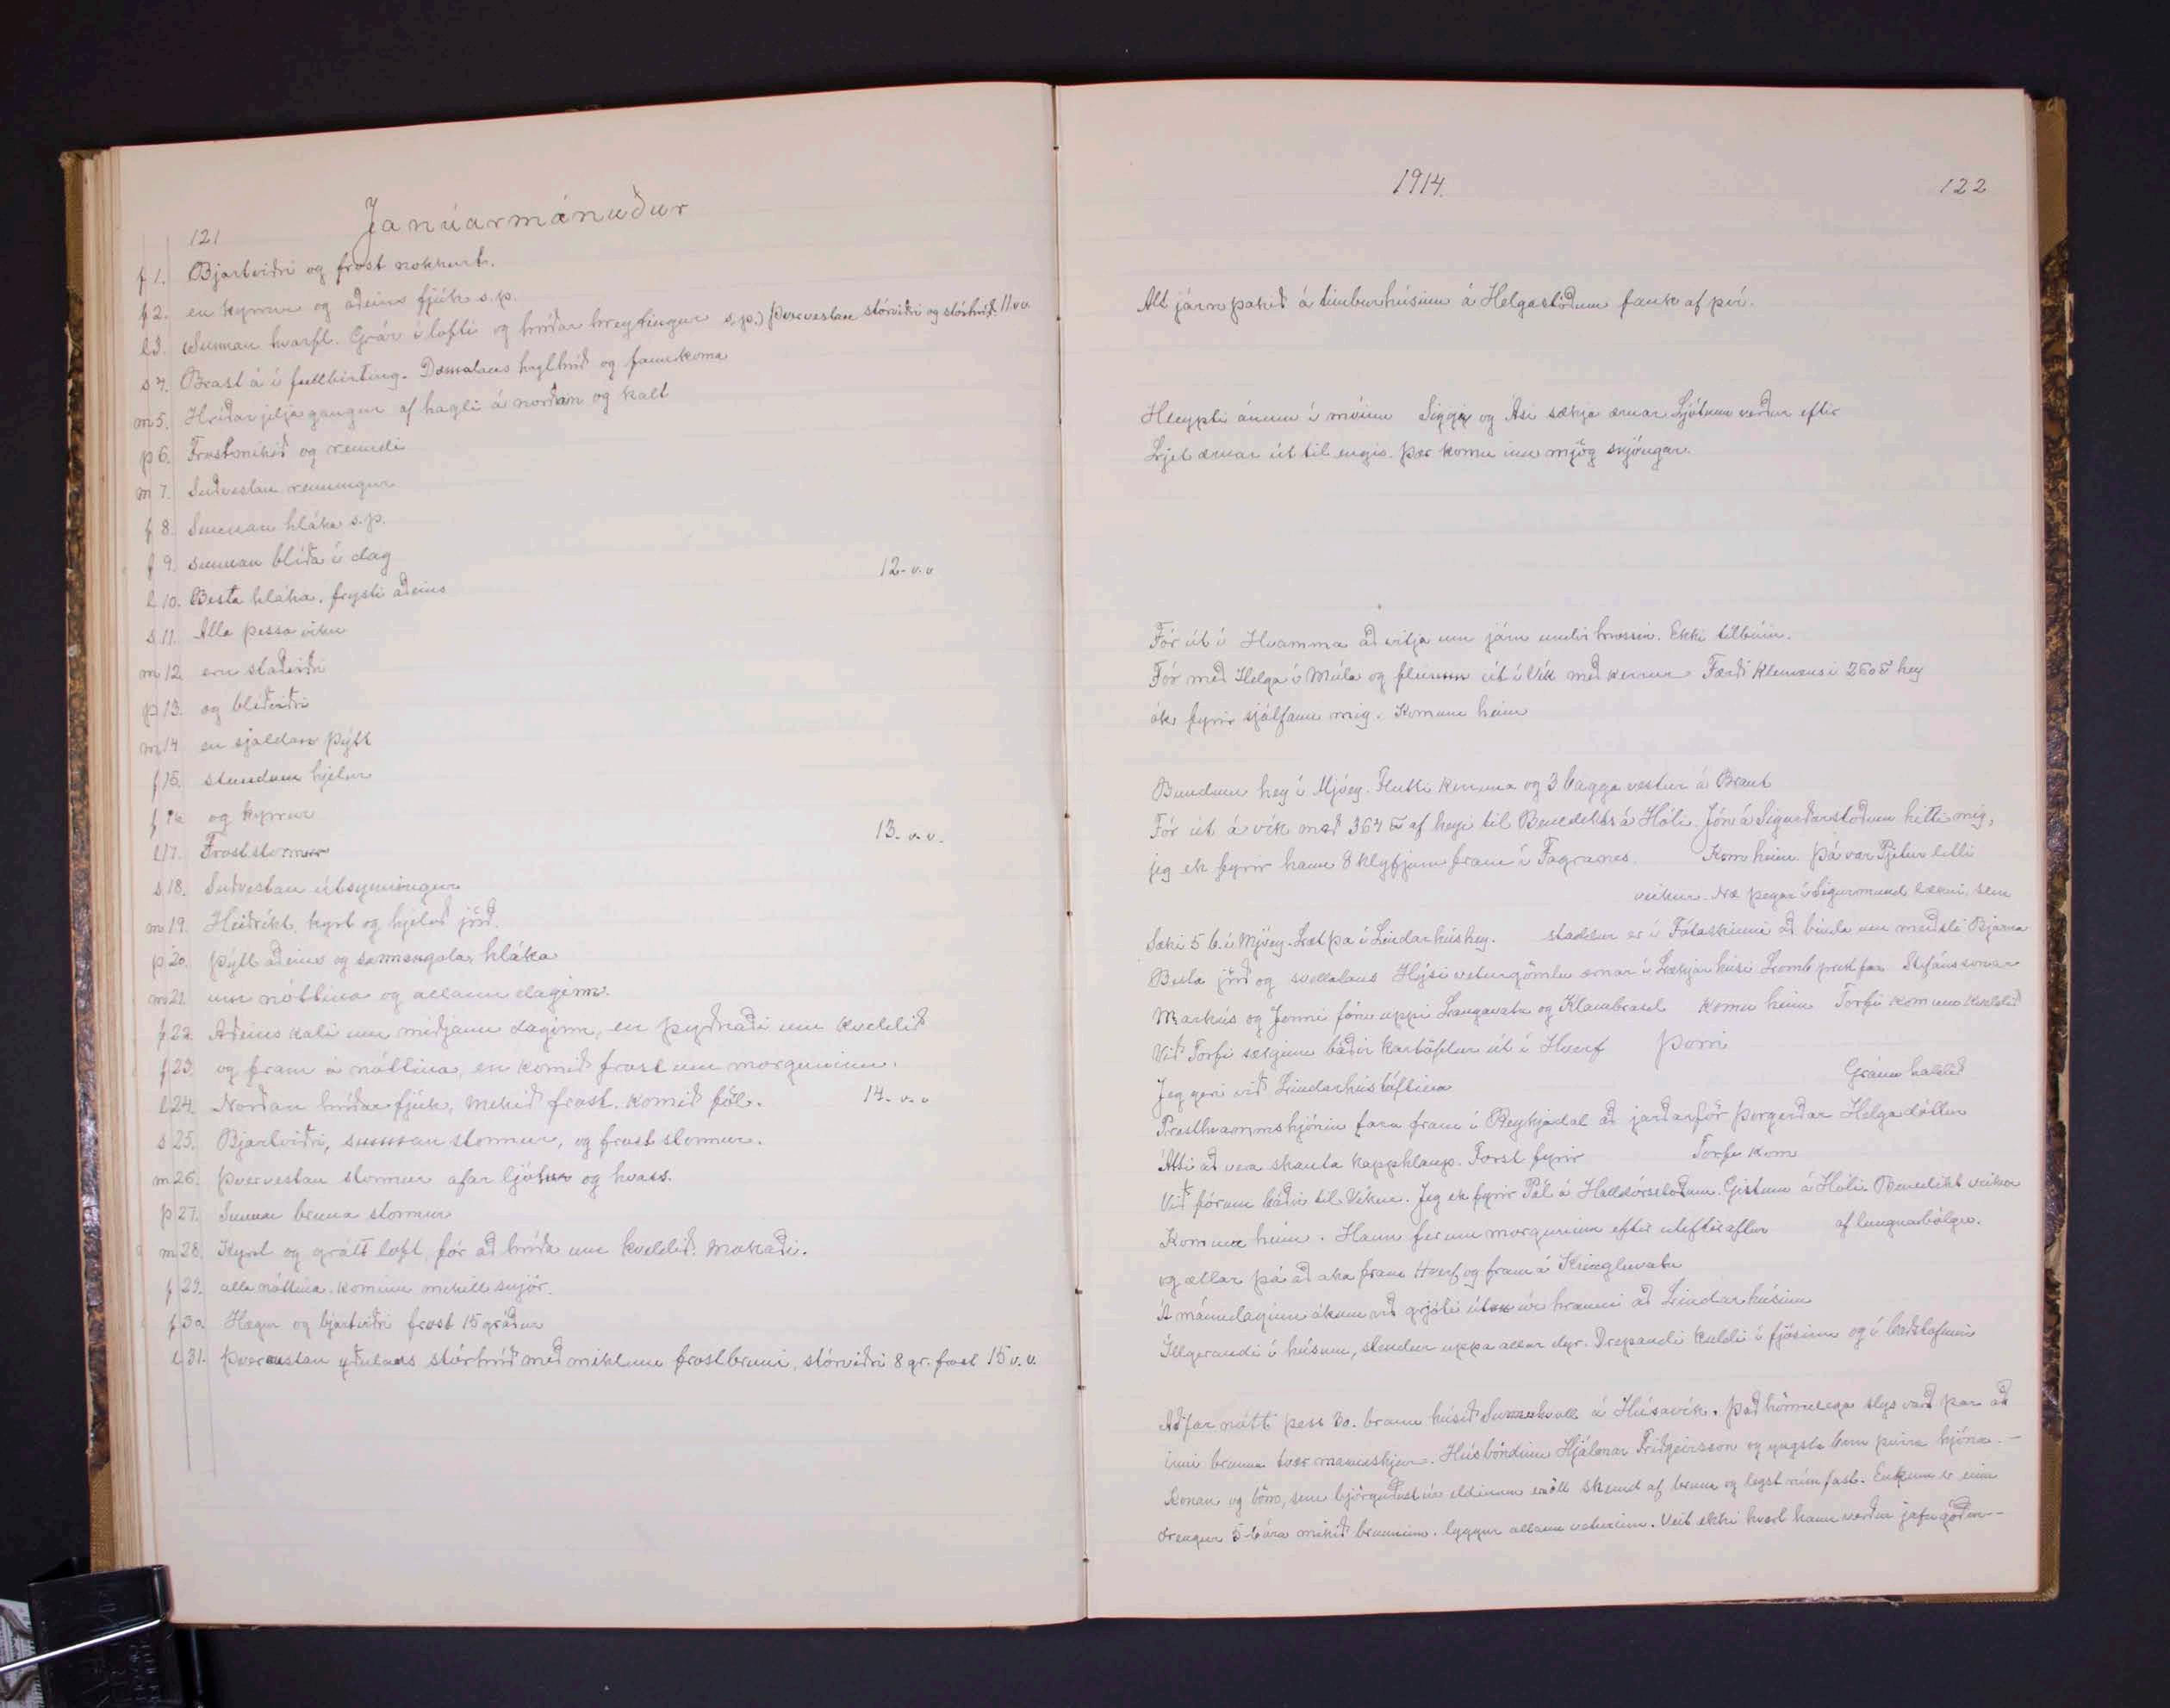 121
Janúarmánuður
f 1. Bjartviðri og frost nokkurt.
f 2. en kyrrur og aðeins fjúk s.p.
l 3. Sunnan hvarfl. Grár í lofti og hríðar hreytingur s.p.) Þvervestan stórviðri og stórhríð. 11 v.v.
s 4. Brast á í fullbirting. Dæmalaus haglhríð og fannkoma
m 5. Hríðar jeljagangur af hagli á norðan og kalt
þ 6. Frostmikið og renndi
m 7. Suðvestan renningur
f 8. Sunnan hláka s.p.
f 9. sunnan blíða í dag
l 10. Besta hláka, frysti aðeins 12. v.v
s 11. Alla þessa viku
m 12. eru staðviðri
þ 13. og blíðviðri
m 14. en sjaldan þýtt
f 15. stundum hjelur
f 16. og kyrrur
l 17. Froststormur 13. v.v.
s 18. Suðvestan útsynningur
m 19. Heiðríkt, kyrt og hjeluð jörð.
þ 20. Þýtt aðeins og sunnangola, hláka
m 21. um nóttina og allann daginn.
f 22. Aðeins kali um miðjann daginn, en þyðnaði um kveldið
f 23. og fram á nóttina, en komið frost um morguninn.
l 24. Norðan hríðar fjúk, mikið frost. Komið föl. 14. v.v
s 25. Bjartviðri, sunnan stormur, og frost stormur.
m 26. Þvervestan stormur afar ljótur og hvass.
þ 27. Sunnan bruna stormur
m 28. Kyrt og grátt loft, fór að hríða um kveldið. Mokaði.
f 29. alla nóttina. kominn mikill snjór.
f 30. Hægur og bjartviðri frost 15 gráður
l 31. Þveraustan yðulaus stórhríð með miklum frostbruni, stórviðri 8 gr. frost 15 v.v.
1914.
122
Alt járnþakið á timburhúsinu á Helgastöðum fauk af því.
Hleypti ánum í móinn Siggi og Ási sækja ærnar Ljótunn verður eftir
Ljet ærnar út til engis. Þær komu inn mjög svöngar.
Fór út í Hvamma að vitja um járn undir hrossin. Ekki tilbúin.
Fór með Helga í Múla og fleirum út í Vík með kerrur Færði Klemensi 260 ℔ hey
ók fyrir sjálfann mig. Komum heim
Bundum hey í Mjóey. Flutti kerruna og 3 bagga vestur á Braut
Fór út á vík með 364 ℔ af heyi til Benedikts á Hóli. Jón á Sigurðarstöðum hitti mig,
jeg ek fyrir hann 8 klyfjum fram í Fagranes. Kom heim. Þá var Pjetur litli
veikur. Næ þegar í Sigurmund lækni, sem
Sæki 5 b. í Mjóey. Læt þá í Lindarhúshey. staddur er í Fótaskinni að binda um meiðsli Bjarna
Besta jörð og svellalaus Hýsi veturgömlu ærnar í Lækjarhúsi Lomb Stefánssonar
Markús og Jonni fóru uppí Langavatn og Klambrasel Komu heim Torfi kom um kveldið
Við Torfi sækjum báðir kartöflur út í Hverf Þorri
Jeg geri við Lindarhústóftina Gránu haldið
Presthvammshjónin fara fram í Reykjadal að jarðarför Þorgerðar Helgadóttur
Átti að vera skauta kapphlaup. Forst fyrir Torfi kom
Við fórum báðir til Víkur. Jeg ek fyrir Pál á Halldórsstöðum. Gistum á Hóli. Benedikt veikur
Komum heim. Hann fer um morguninn eftir úteftir aftur af lungnabólgu.
og ætlar þá að aka fram Hverf og fram á Kringluvatn
Á mánudaginn ókum við grjóti úr hrauni að Lindarhúsinu
Illgerandi í húsum, stendur uppá allar dyr. Drepandi kuldi í fjósinu og í baðstofunni
Aðfaranótt þess 30. brann húsið Sunnuhvoll á Húsavík. Það hörmulega slys varð þar að
inni brunnu tvær manneskjur. Húsbóndinn Hjálmar Friðgeirsson og yngsta barn þeirra hjóna. -
Konan og börn, sem björguðust úr eldinum eru öll skemd af bruna og legst rúmföst. Einkum er einn
drengur 5 ára mikið brunninn. lyggur allann veturinn. Veit ekki hvort hann verður jafngóður -